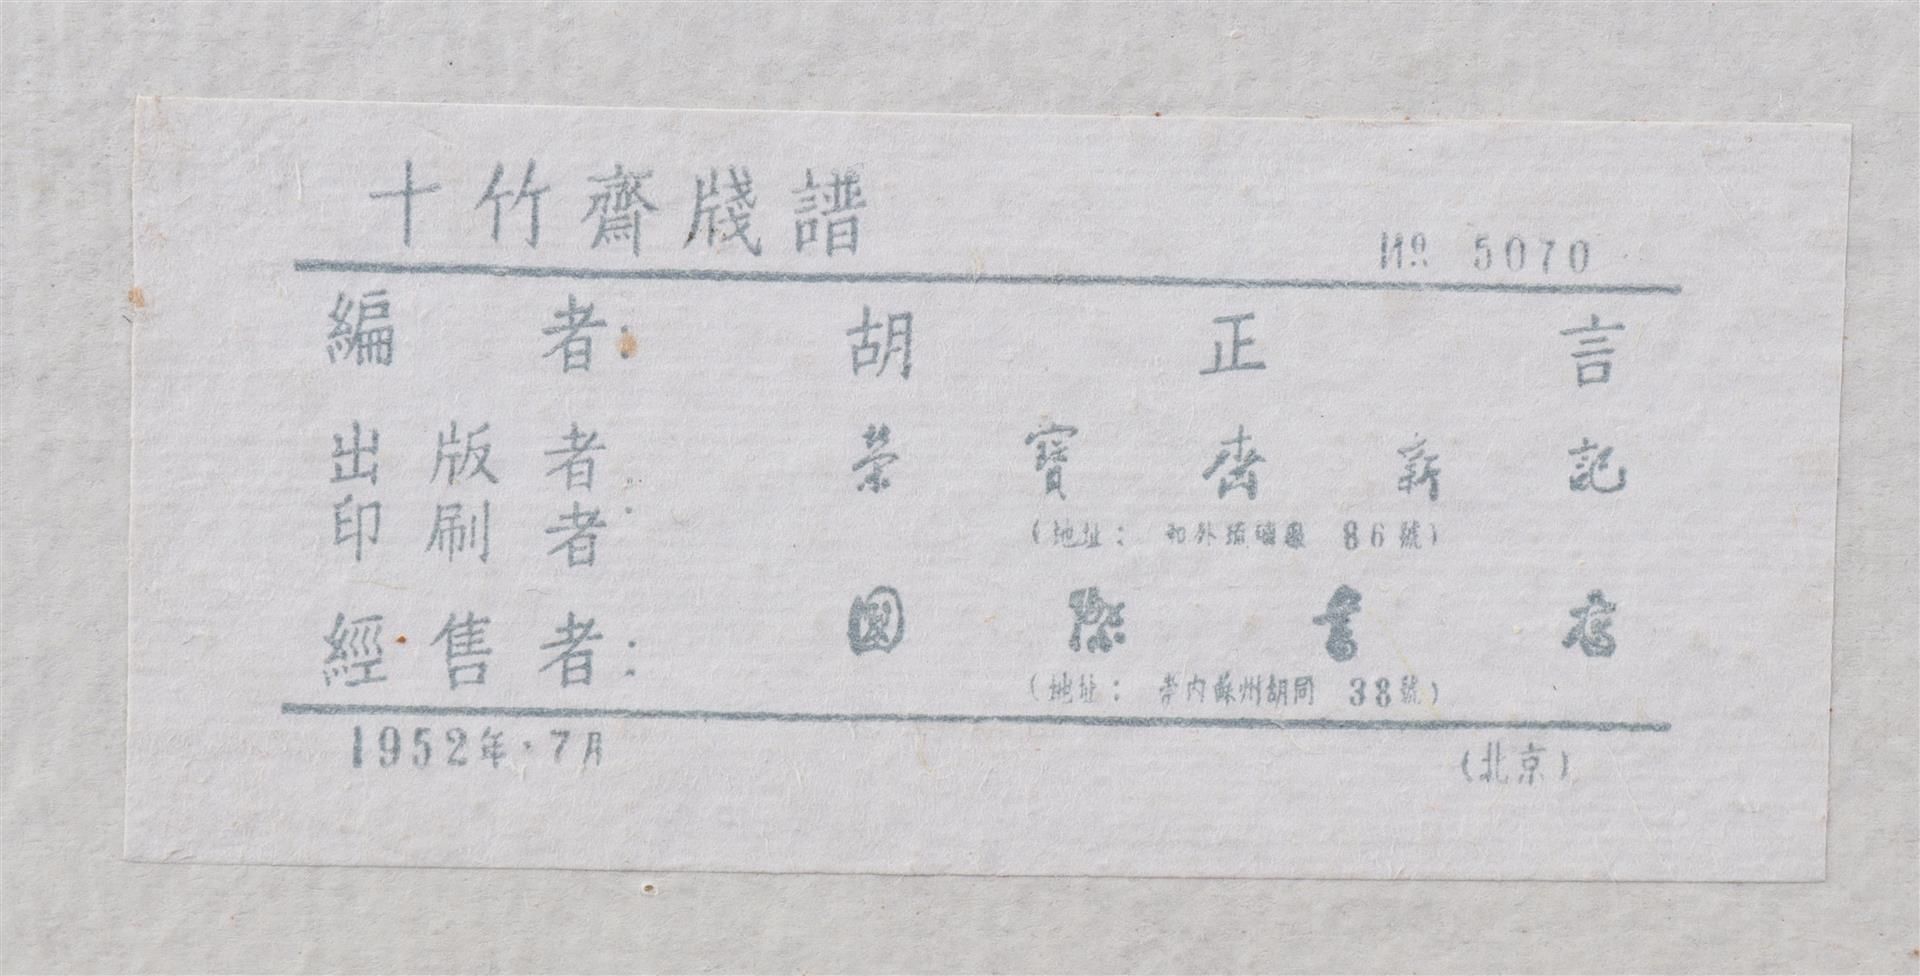 十竹齋牋譜
No. 5070
編者: 胡正言
出版者 榮寶齋新記
印刷者
(地址: 和外琉璃廠 86號)
經售者: 國際書店
(地址: 崇內蘇州胡同 38號)
1952年·7月
(北京)